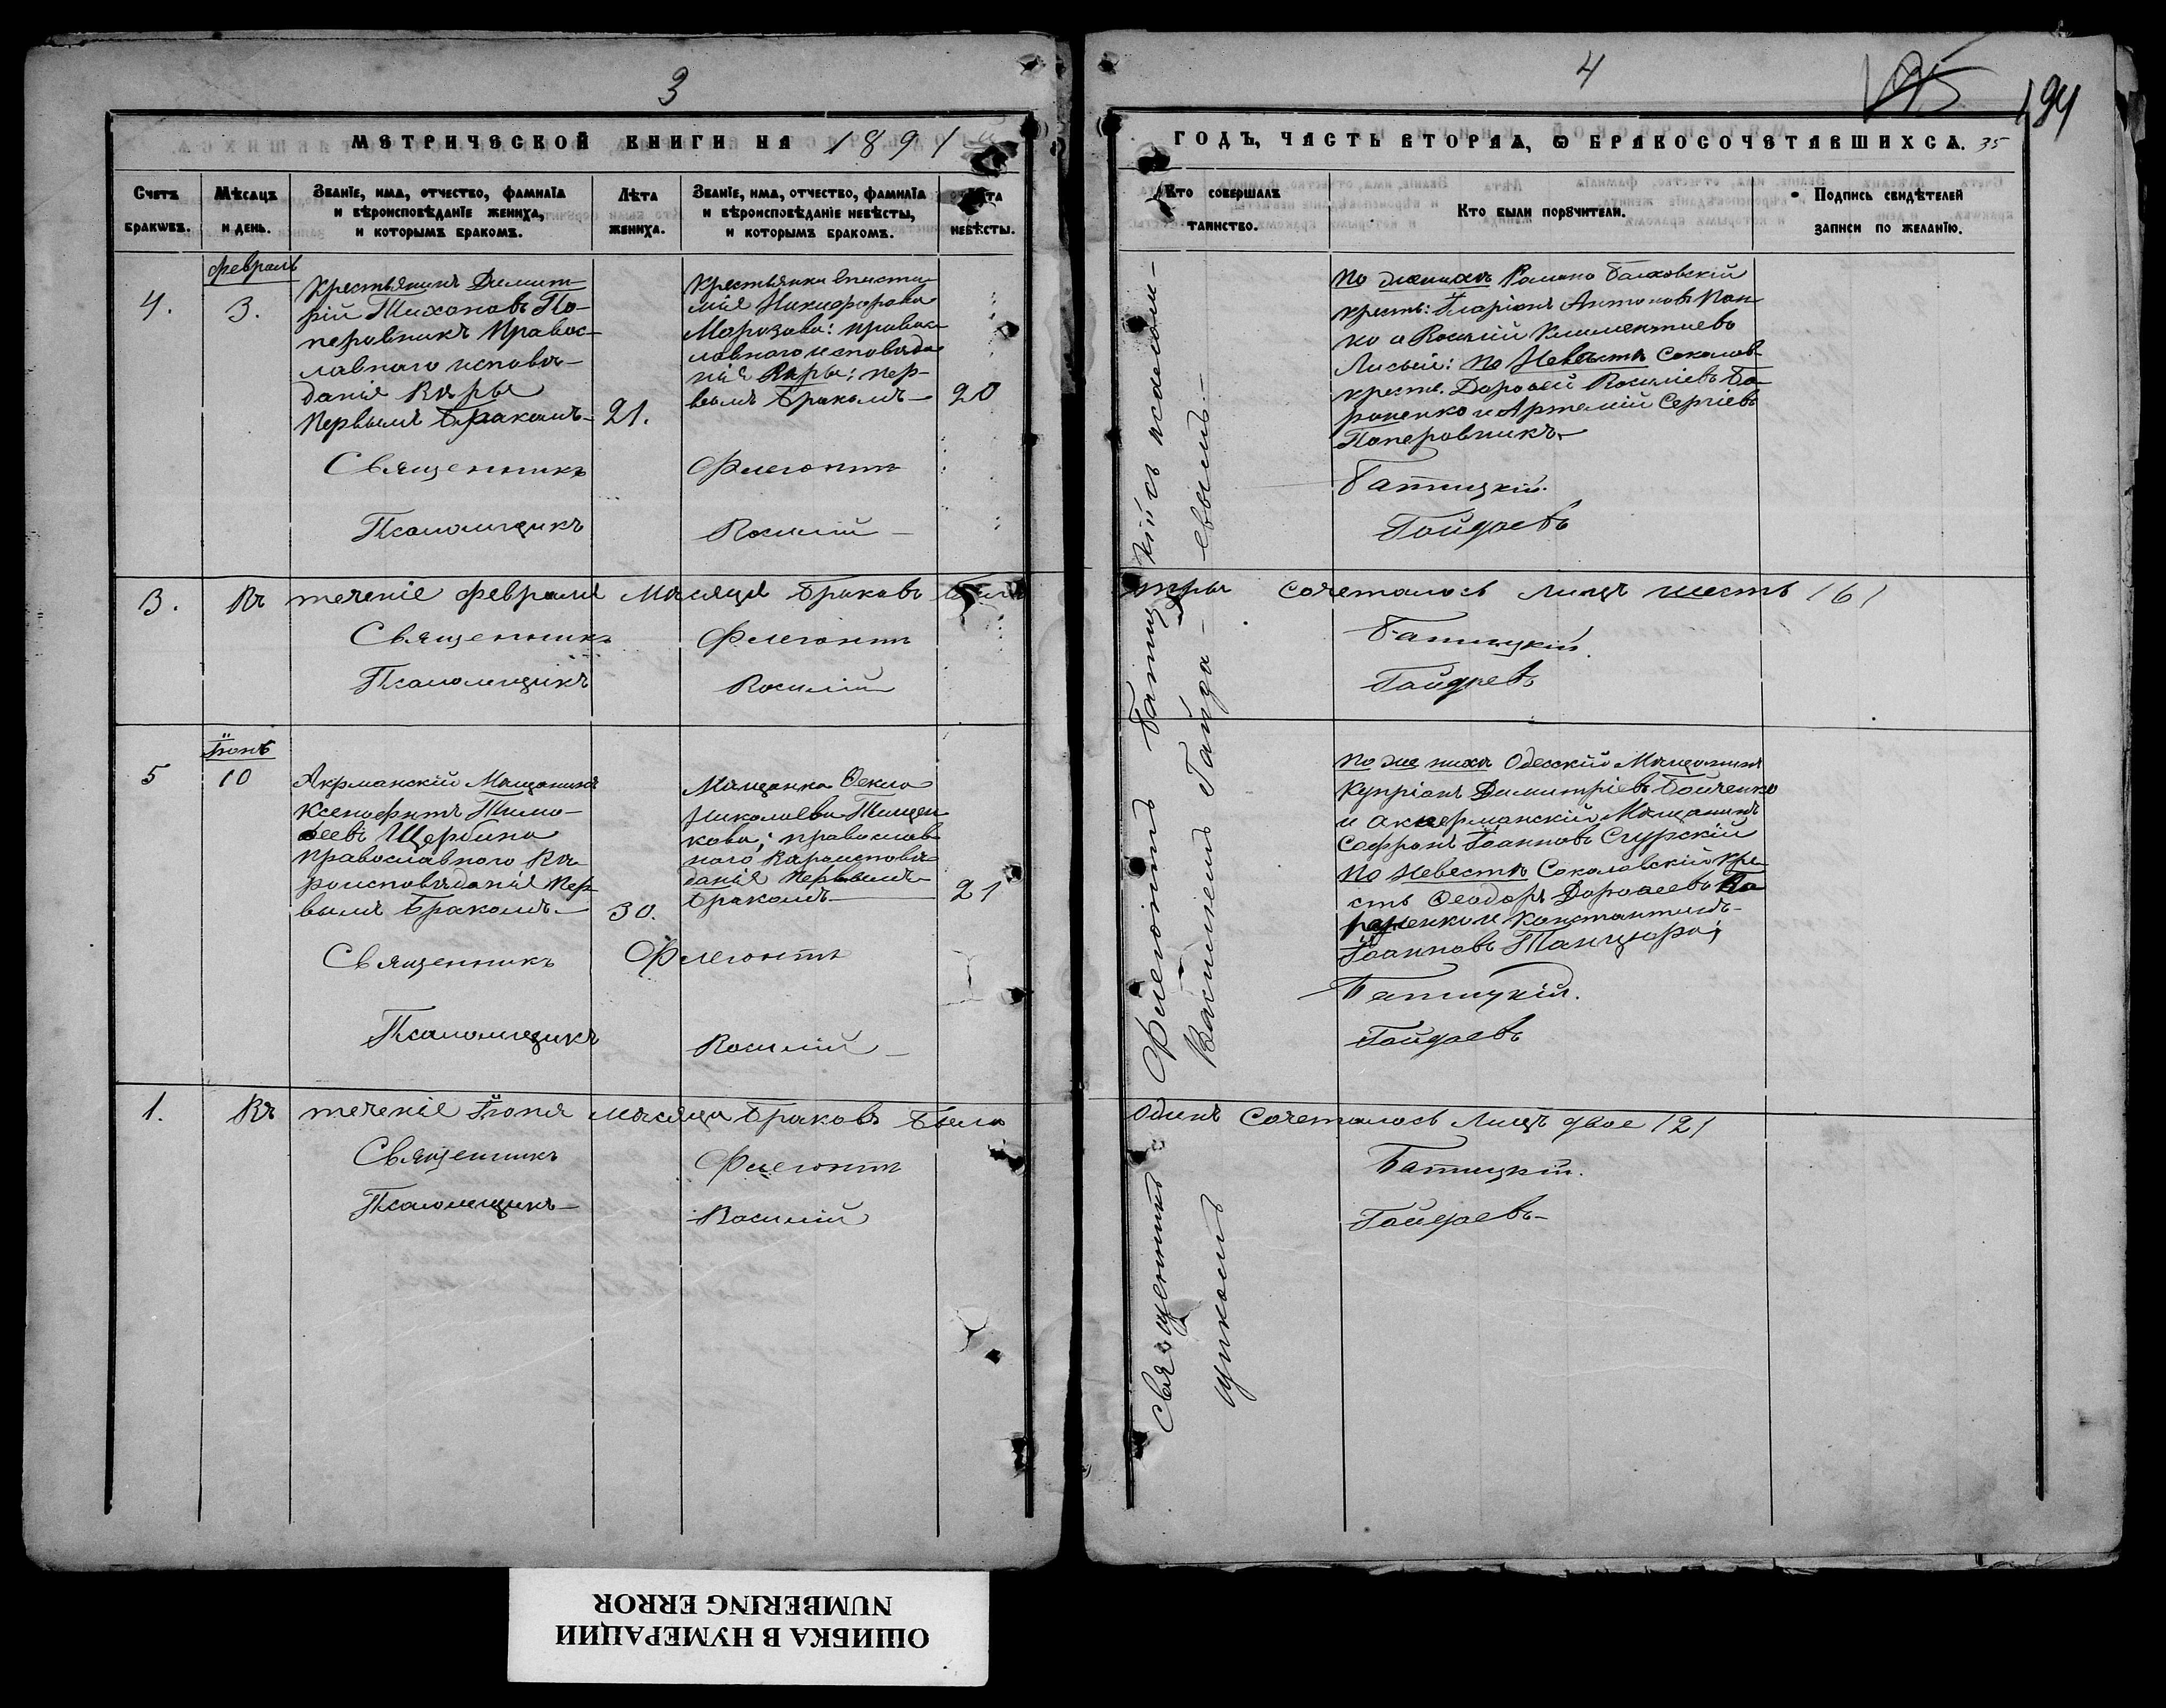 3
МЕТРИЧЕСКОЙ КНИГИ НА 1891
Счетъ браковъ.
Мѣсяцъ и день.
Званіе, имя, отчество, фамилія
и вѣроисповѣданіе жениха,
и которымъ бракомъ.
Лѣта
жениха.
Званіе, имя, отчество, фамилія
и вѣроисповѣданіе невѣсты,
и которымъ бракомъ.
Лѣта
невѣсты.
февраль
4.
3.
Крестьянинъ Димит-
рій Тихоновъ По-
перовникъ Правос-
лавнаго исповѣ-
данія Вѣры
Первымъ бракомъ
21.
Крестьянка
Никифорова
Морозова: правос-
лавнаго исповѣда
нія Вѣры; пер-
вымъ бракомъ
20
Священникъ Флегонтъ
Псаломщикъ Василій
3. Въ теченіе февраля мѣсяця браковъ было
Священникъ Флегонтъ
Псаломщикъ Василій
Іюнь
5
10
Акрманскій Мѣщанинъ
Ксенофнтъ Тимо-
ѳеевъ Щербина
православнаго Вѣ-
роисповѣданія Пер-
вымъ бракомъ
30.
Мѣщанка Ѳекла
Николаева Тищен
кова; православ
наго Вѣроисповѣ-
данія первымъ
бракомъ
21
Священникъ Флегонтъ
Псаломщикъ Василій
1. Въ теченіе Іюня мѣсяца браковъ было
Священникъ Флегонтъ
Псаломщикъ Василій
4
195
194
ГОДЪ, ЧАСТЬ ВТОРАЯ, О БРАКОСОЧЕТАВШИХСЯ. 35
Кто совершалъ
таинство.
Кто были поручители.
Подпись свидѣтелей
записи по желанію.
Священникъ Флегонтъ Батицкій съ псалом-
щикомъ Василіемъ Гайда-евымъ.
По женихѣ Романо Балховскій
крест: Иларіонъ Антоновъ Пан-
ко и Василій Климентіевъ
Лисый: по Невѣстѣ Соколов-
крест. Дороѳей Василіевъ Ба-
раненко и Артемій Сергіевъ
Поперовникъ
Батицкій.
Гайдаевъ
три сочеталось лицъ шесть /6/
Батицкій.
Гайдаевъ
По жениха Одесскій Мѣщанинъ
Купріанъ Димитріевъ Бойченко
и аккерманскій Мѣщанинъ
Софронъ Іоанновъ Стурскій
По Невестѣ Соколовскій кре-
сть Ѳеодоръ Дороѳеевъ Ба
раненко и Константинъ
Іоанновъ Танцюра;
Батицкій.
Гайдаевъ
одинъ сочеталось лицъ двое /2/
Батицкій.
Гайдаевъ
ОШИБКА В НУМЕРАЦИИ
NUMBERING ERROR